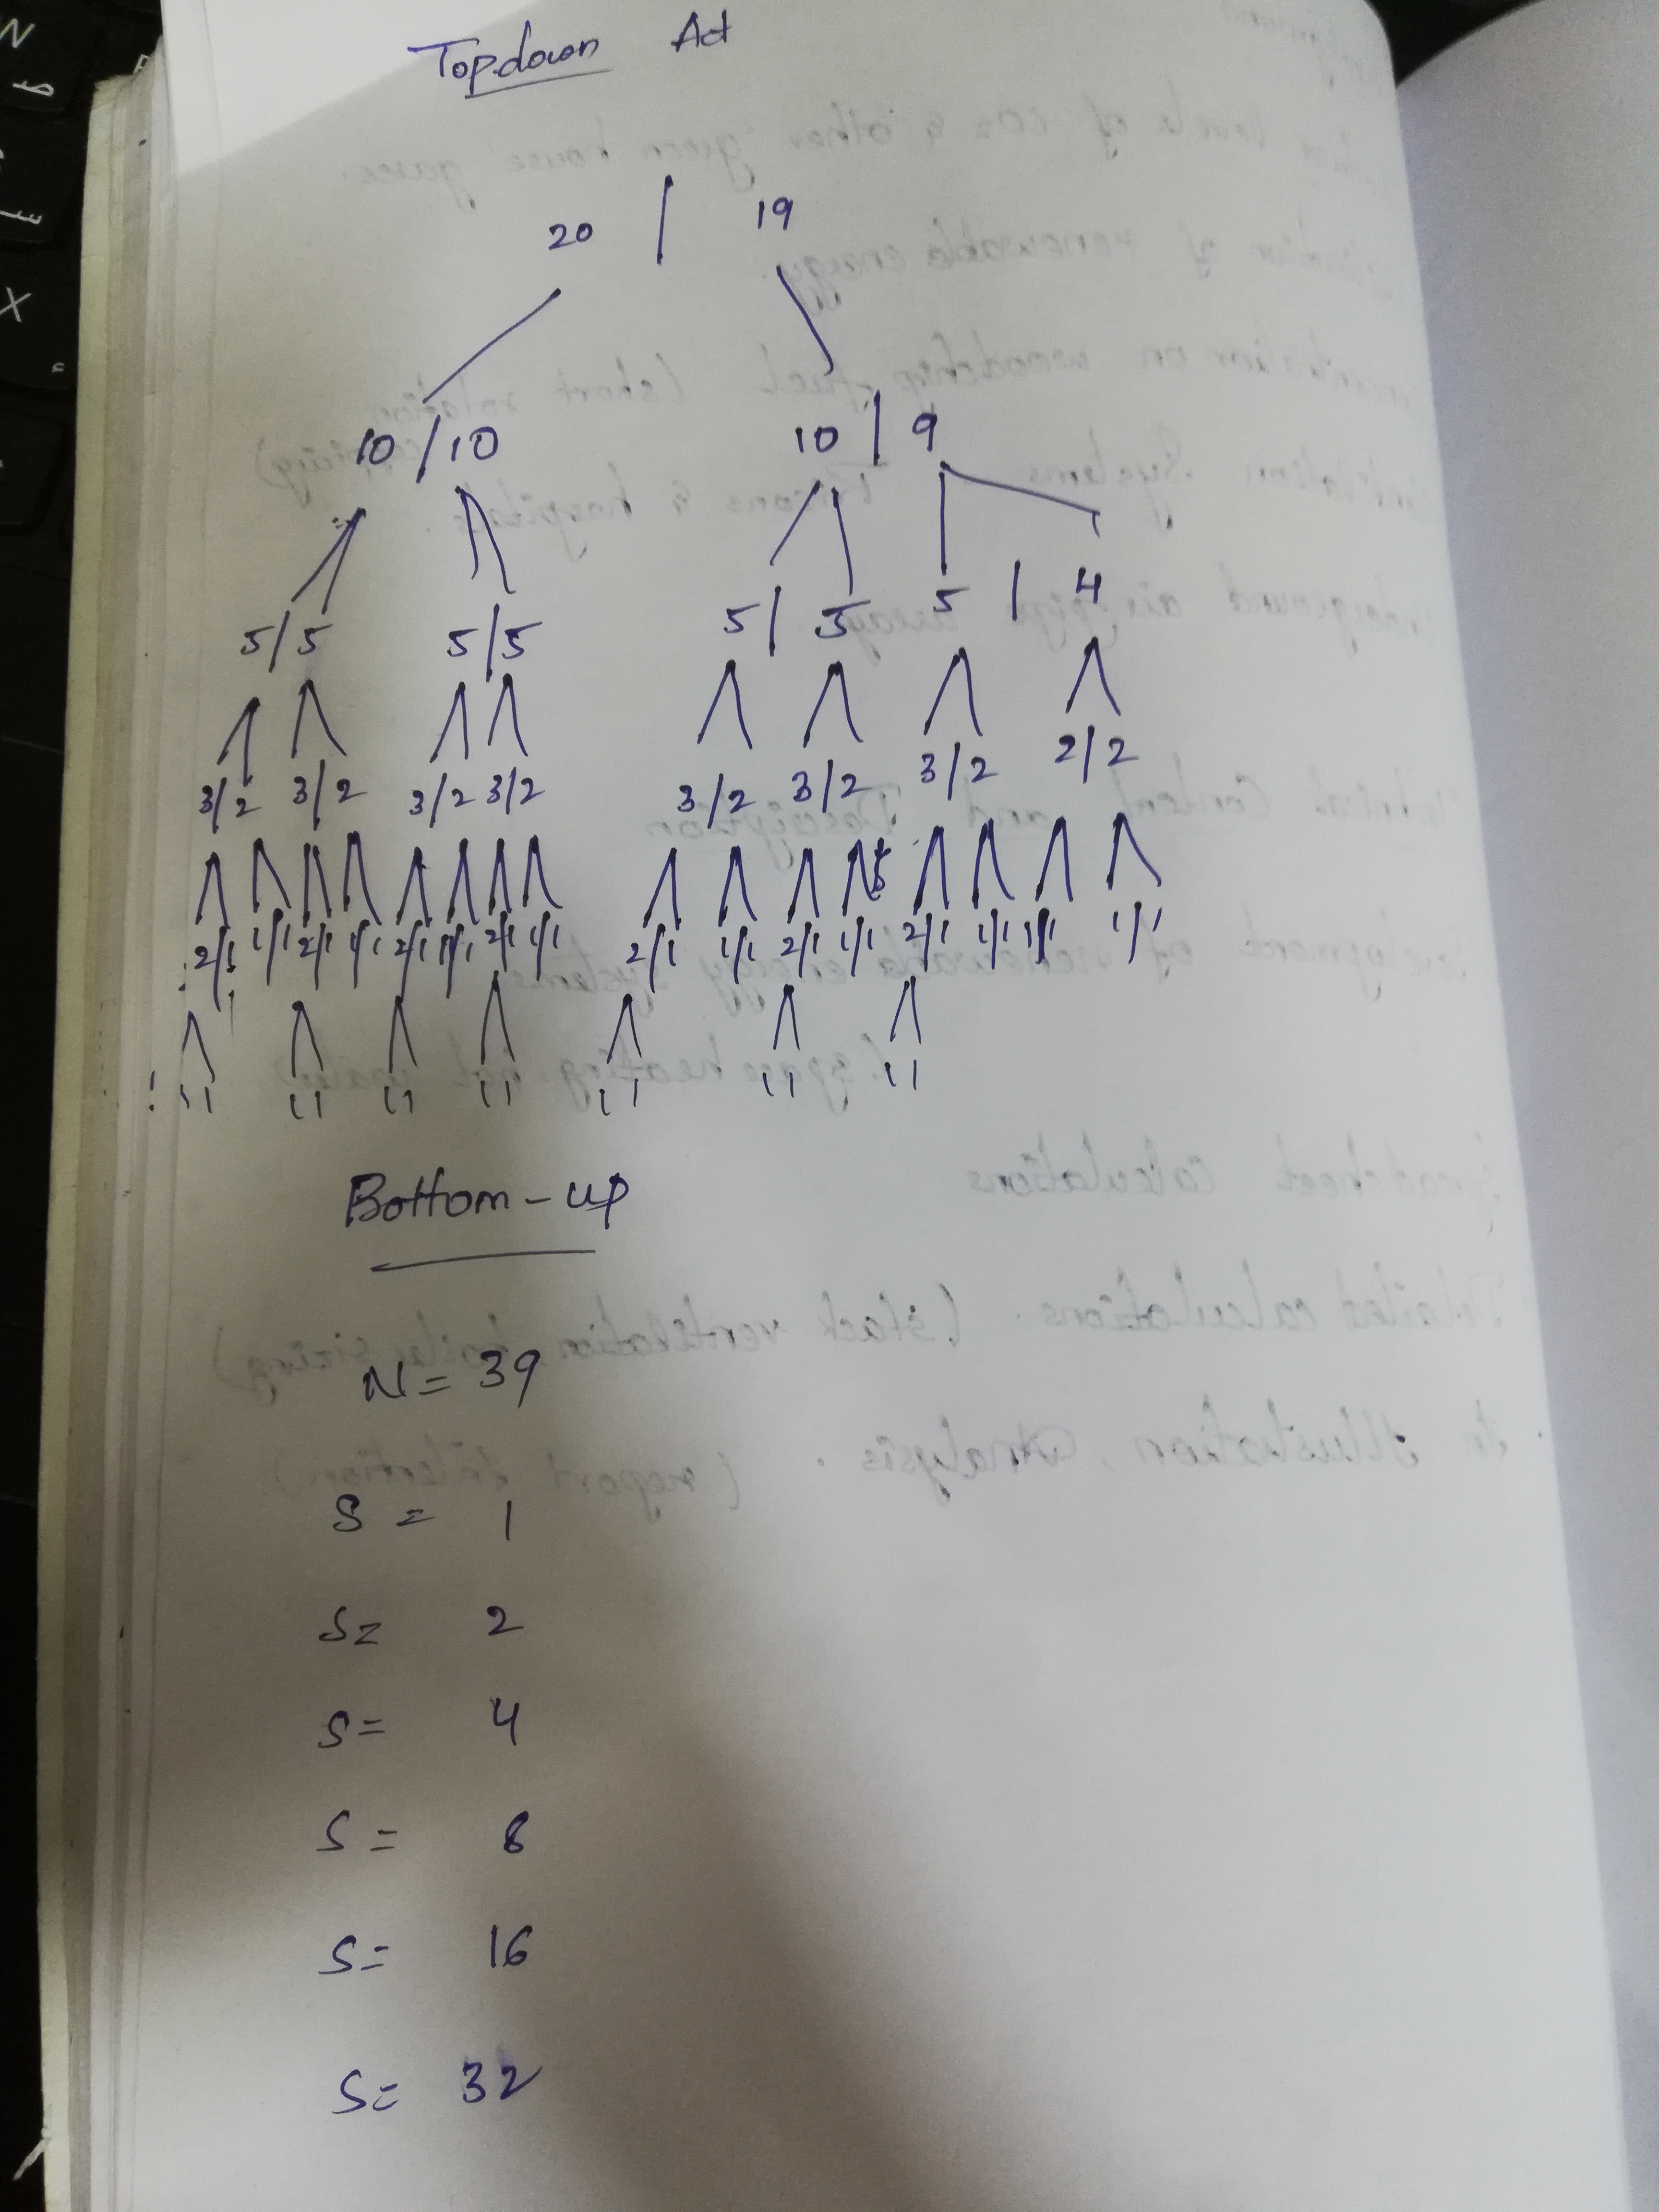 Topdown Act
20 / 19
10 / 10 10 | 9
5/5 5/5 5| 5 5 | 4
3/2 3/2 3/2 3/2 3/2 3/2 3/2 2/2
2/1 1/1 2/1 1/1 2/1 1/1 2/1 1/1 2/1 1/1 2/1 1/1 2/1 1/1 1/1 1/1
11 11 11 11 11 11 11
Bottom-up
N= 39
S = 1
S= 2
S= 4
S= 8
S= 16
S= 32